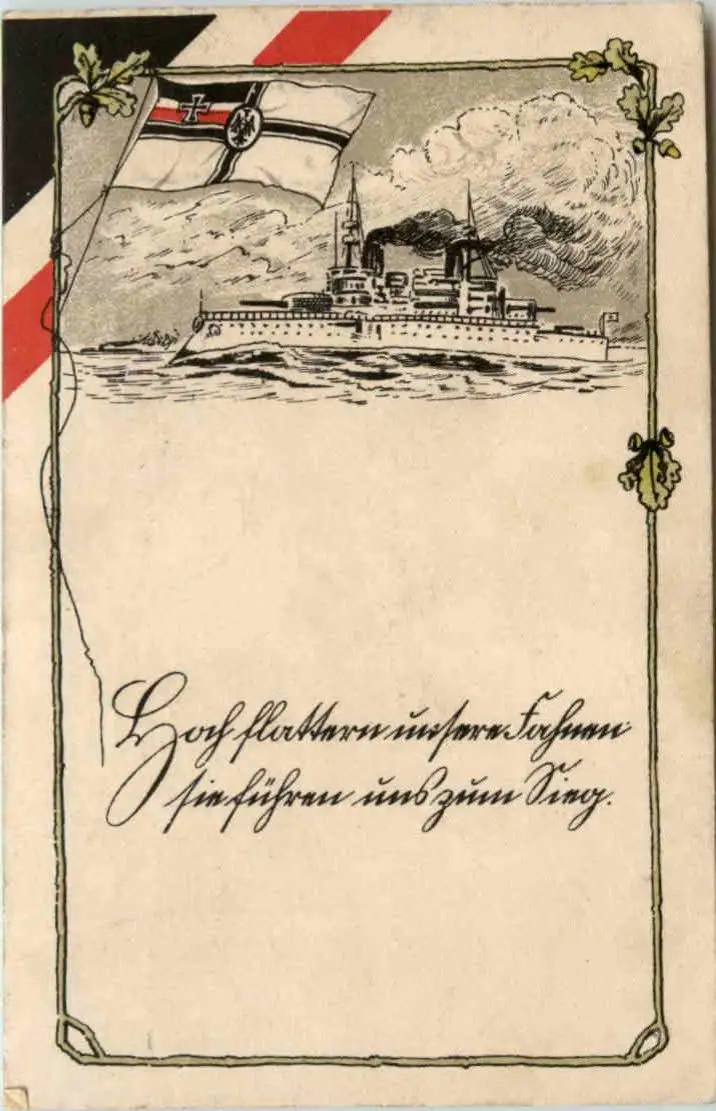 Hoch flattern unsere Fahnen
sie führen uns zum Sieg.